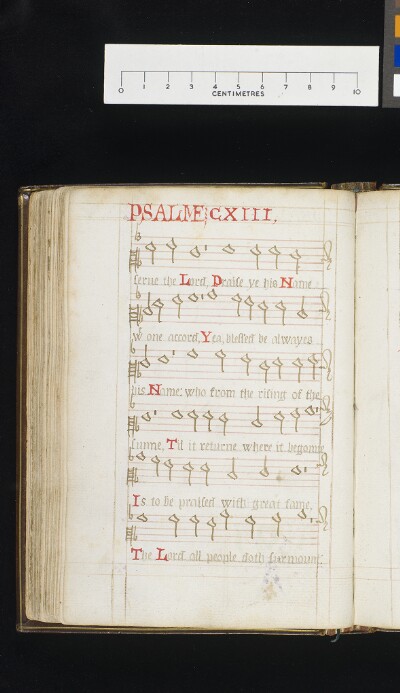 0 1 2 3 4 5 6 7 8 9 10
CENTIMETRES
PSALME CXIII.
serue the Lord, Praise ye his Name
w one accord, Yea, blessed be alwayes
his Name; who from the rising of the
sunne, Til it returne where it begonne
Is to be praised with great fame,
The Lord all people doth surmount;